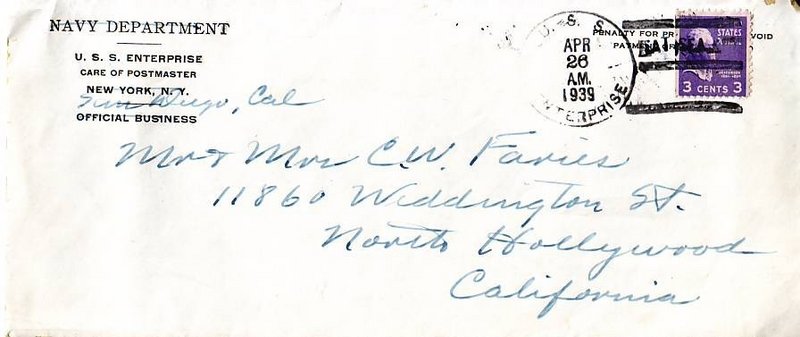 NAVY DEPARTMENT
U. S. S. ENTERPRISE
CARE OF POSTMASTER
NEW YORK, N. Y.
San Diego, Cal
OFFICIAL BUSINESS
U. S. S.
APR
26
A.M.
1939
ENTERPRISE
PENALTY FOR
VOID
AT SEA
STATES
3 CENTS 3
Mr & Mrs C.W. Faries
11860 Weddington St.
North Hollywood
California